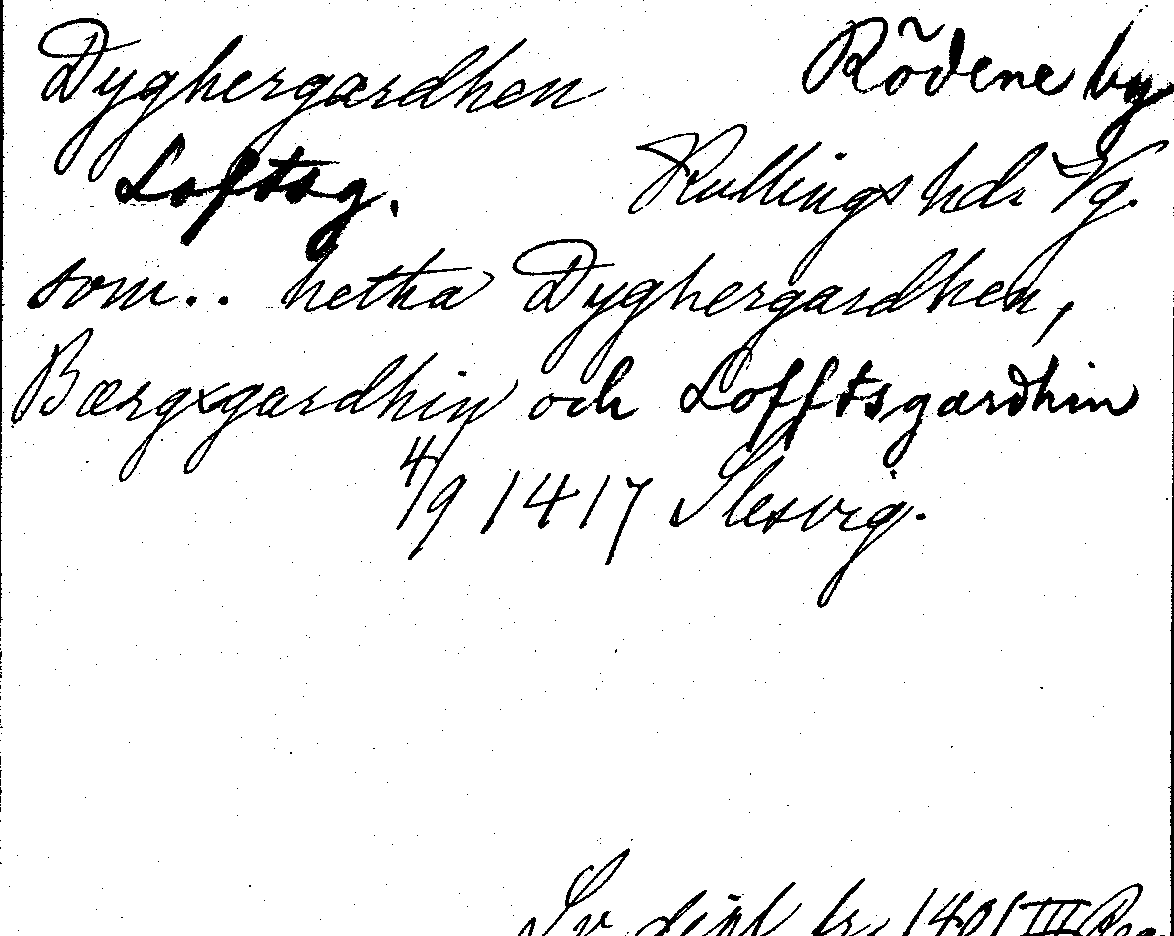 Dyghergardhen Rödene by
Loftsg. Kullings hd. Vg.
som.. hetha Dyghergardhen,
Bærgxgardhin och Lofftsgardhin
4/9 1417 Slesvig.
Sv. dipl. fr. 1401 III